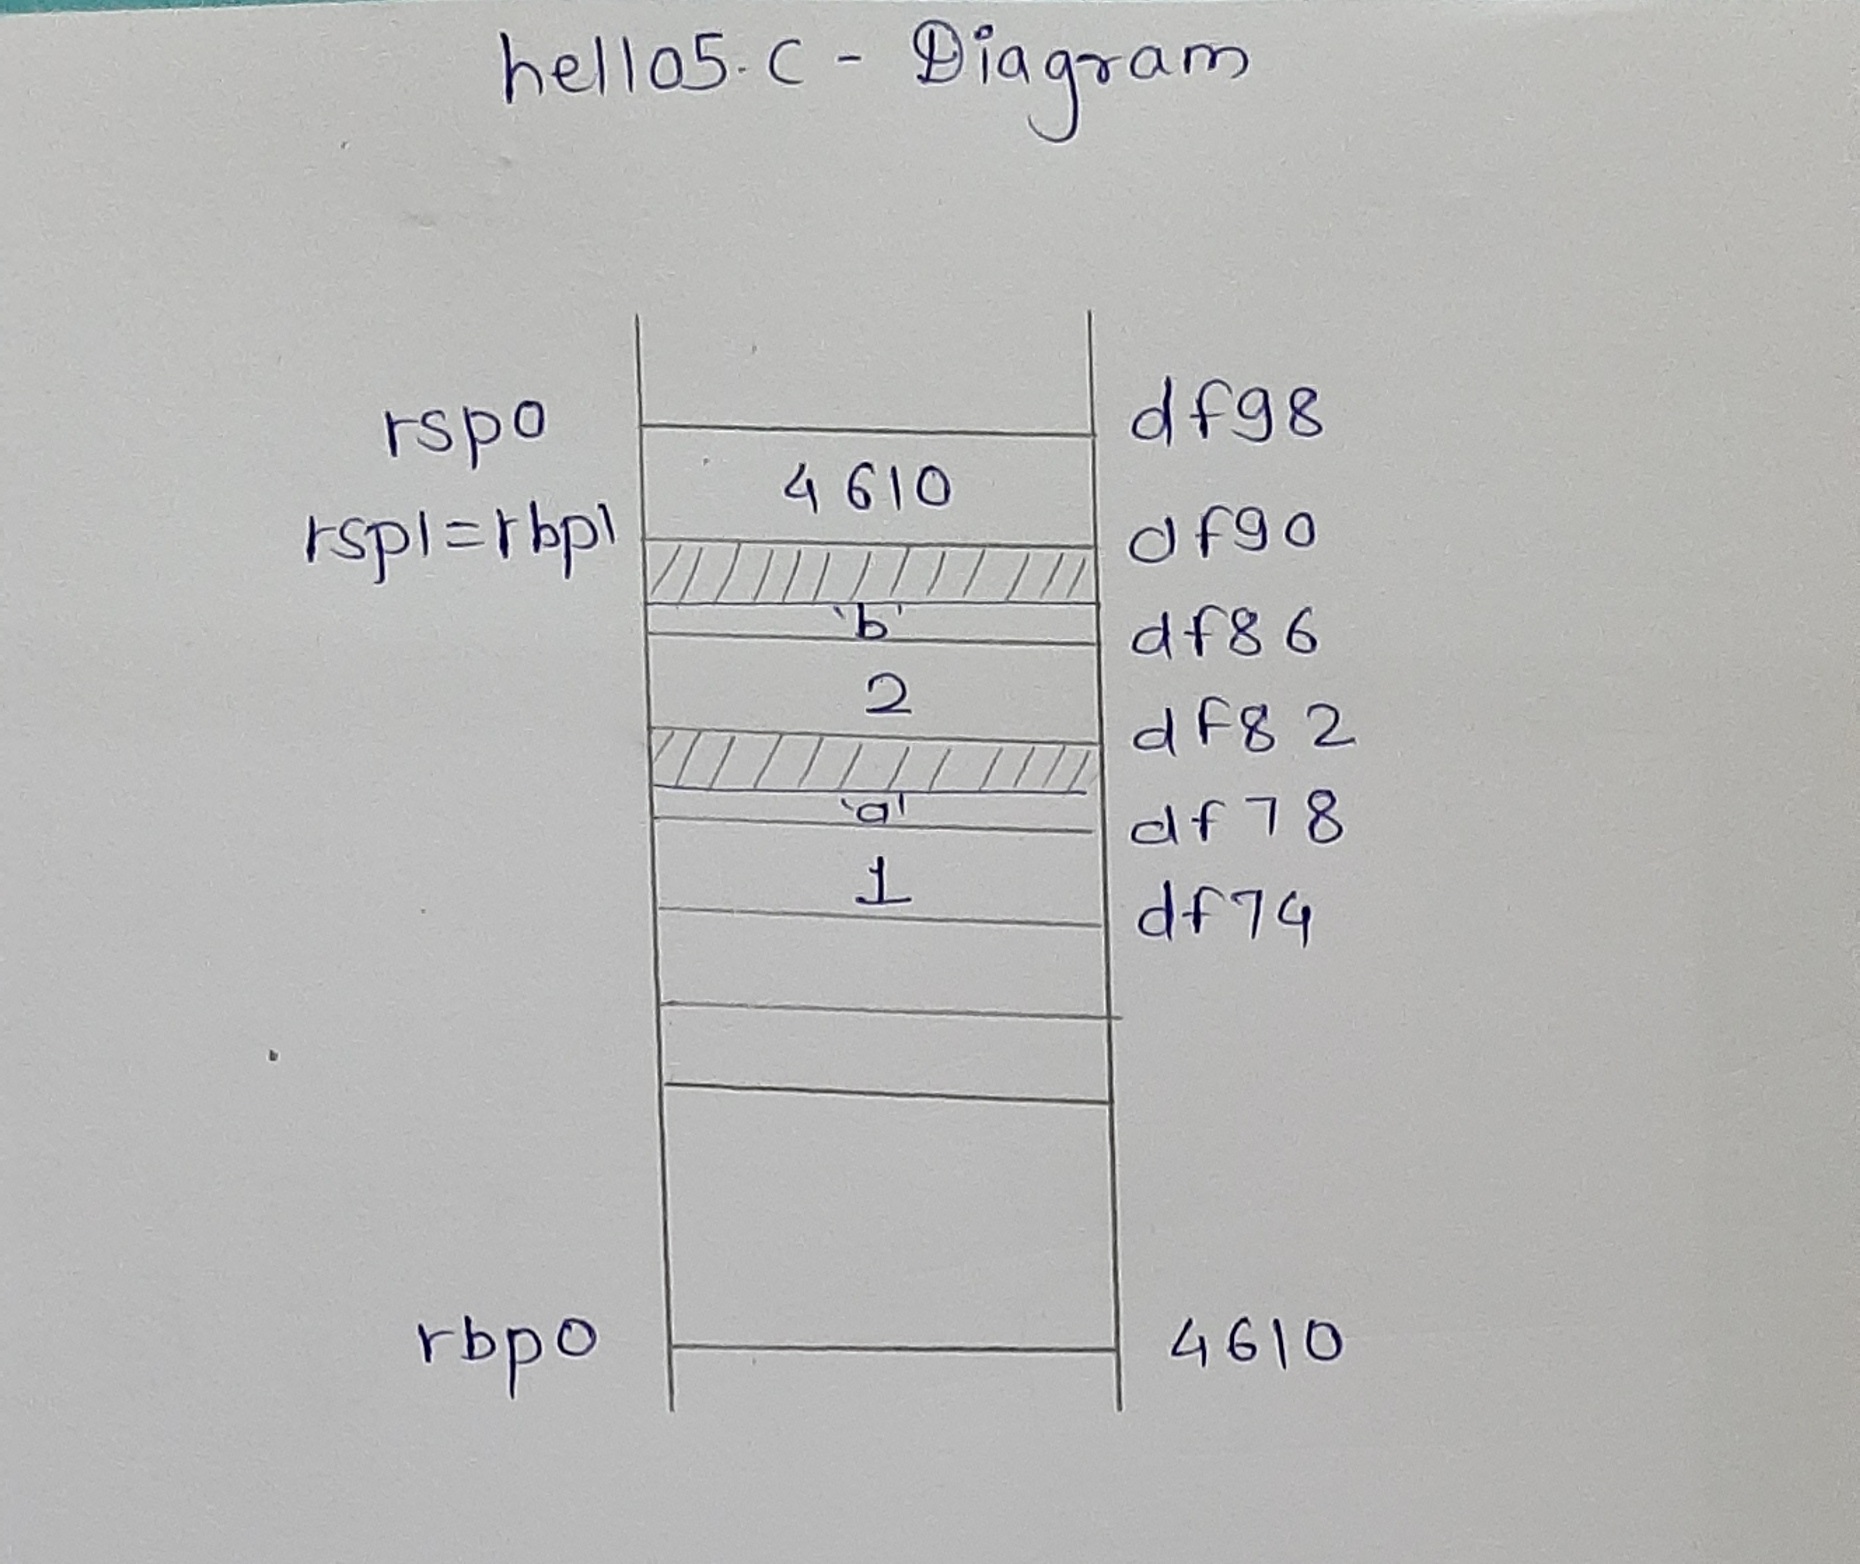 hello5.c - Diagram
rsp0 df98
4610
rsp1=rbp1 df90
'b' df86
2
df82
'a' df78
1
df74
rbp0 4610